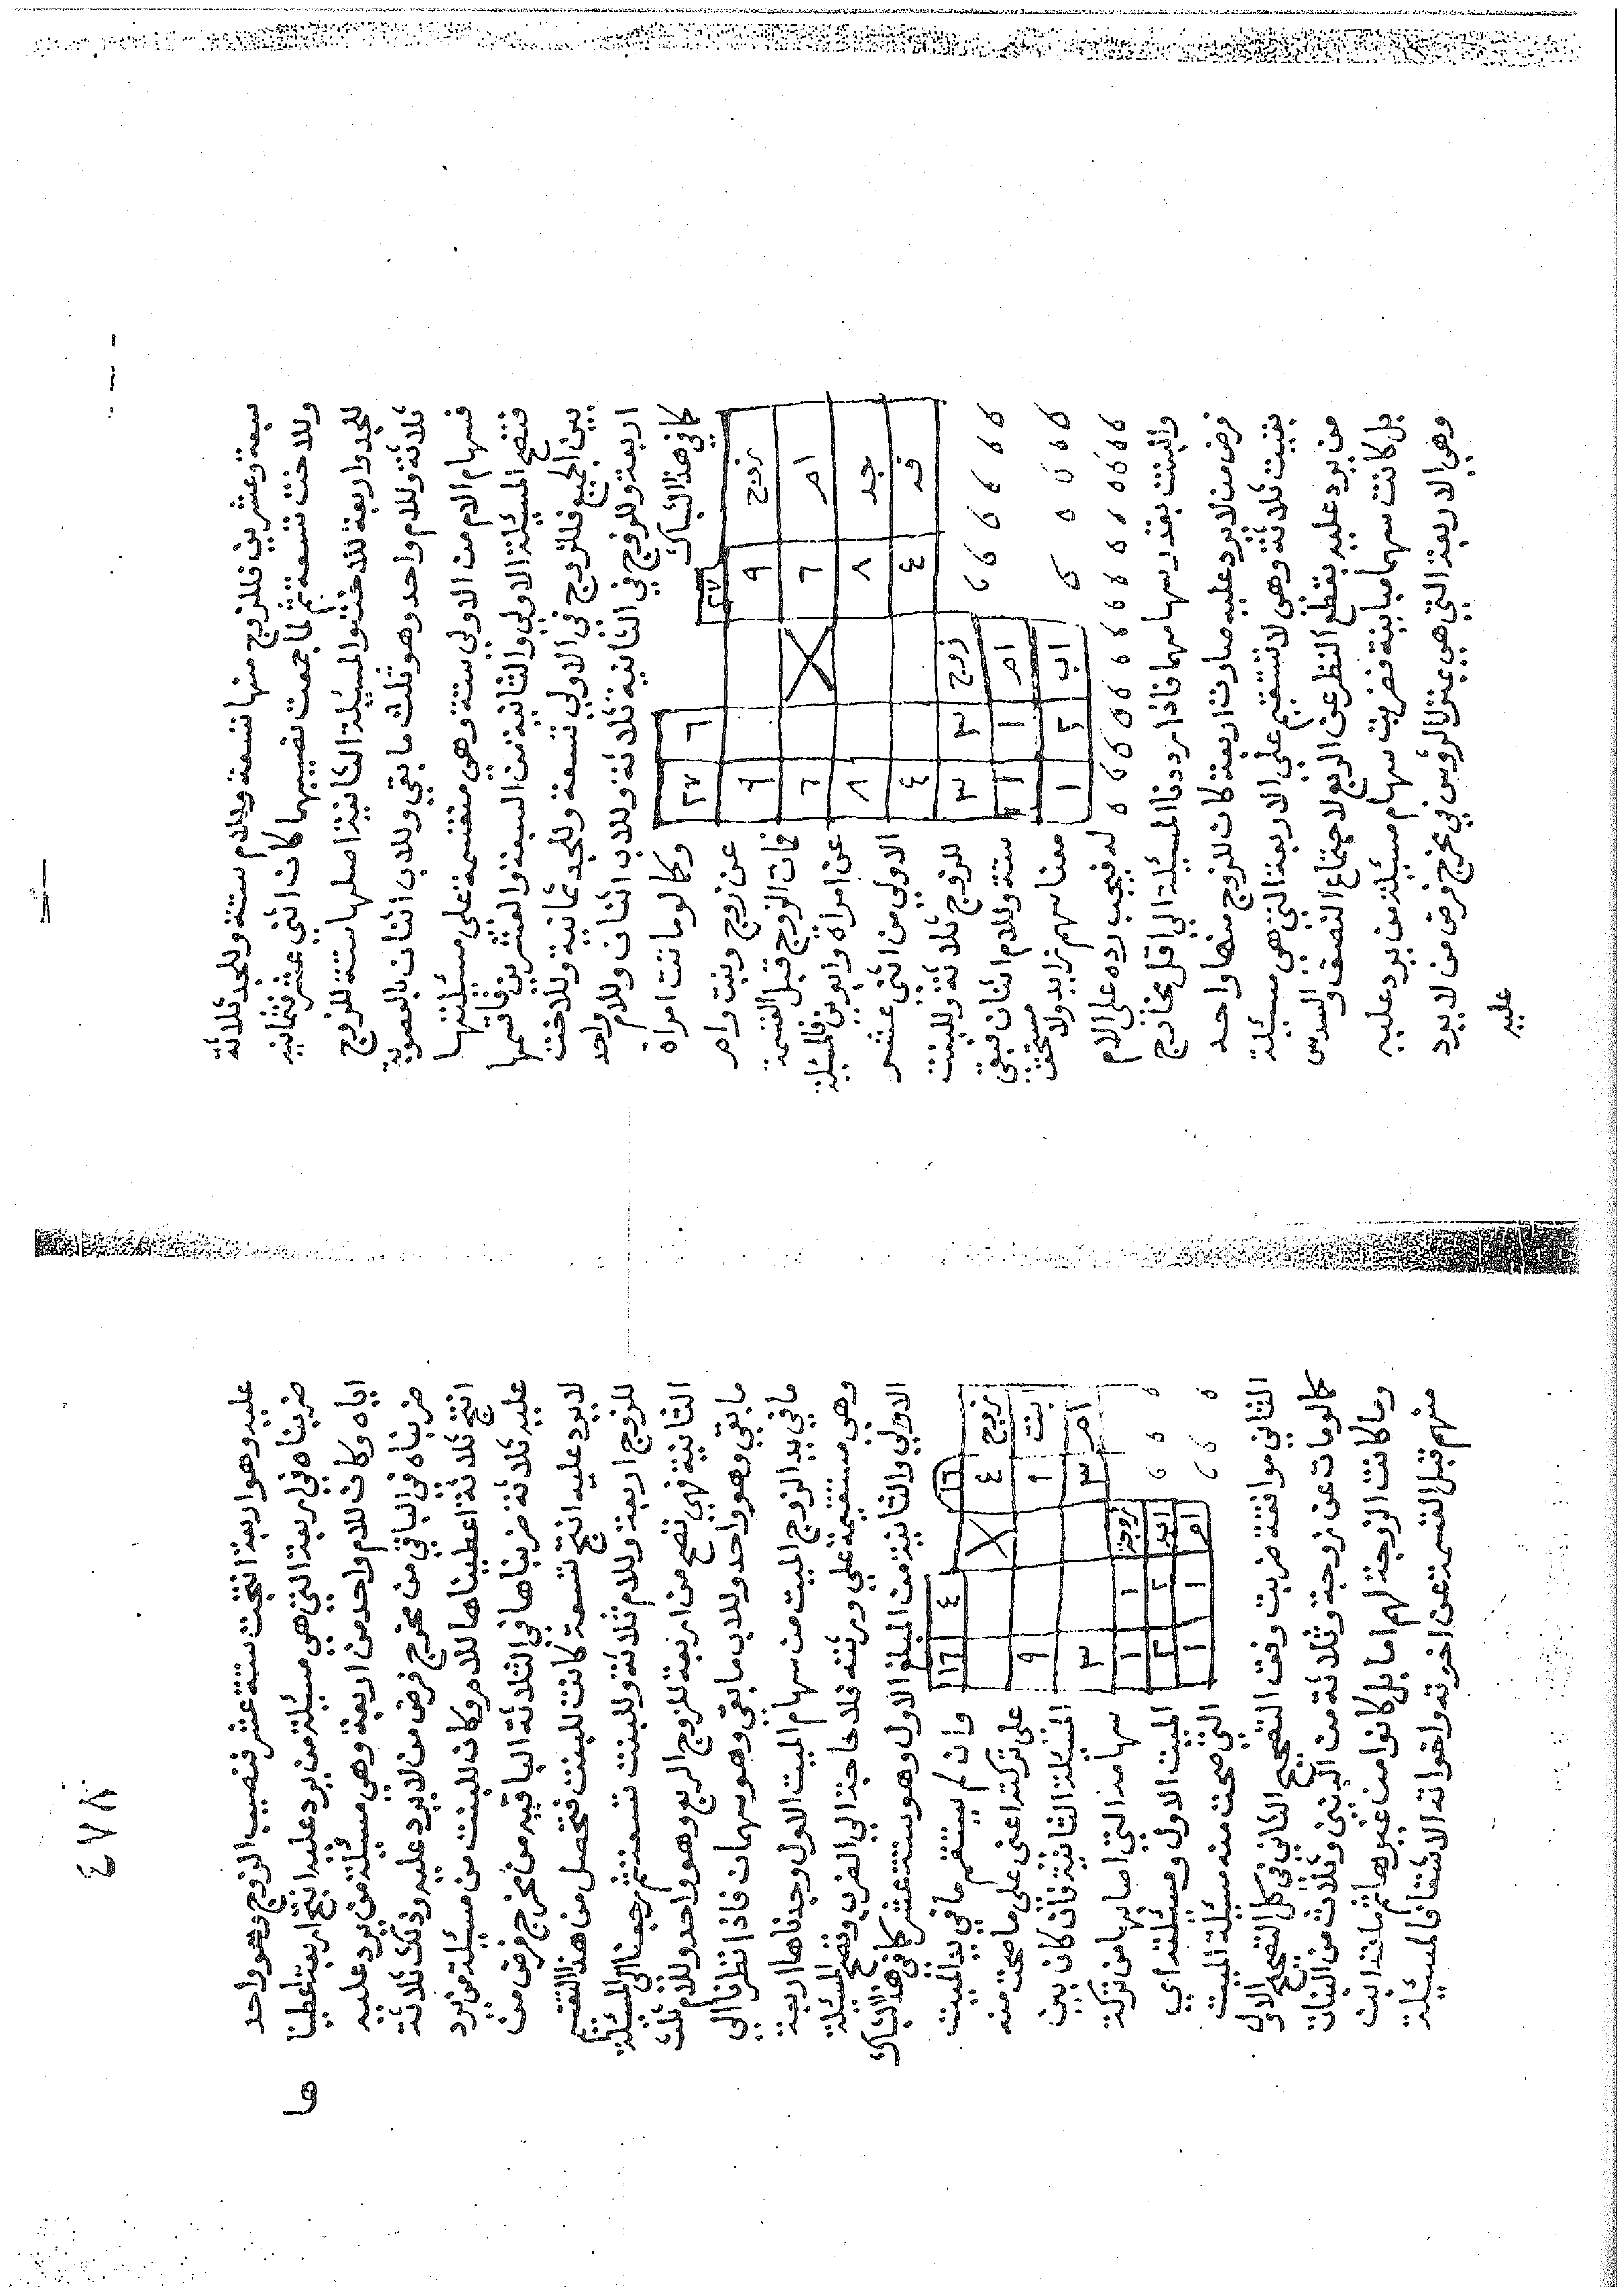 سبعة وعشرين فللزوج منها تسعة وللام ستة وللجد ثلاثة
وللاخت تسعة ثم لما جمعت نصيبهما كان اثني عشر فثمانية
للجد واربعة للاخت والمسئلة الثانية اصلها ستة للزوج
ثلاثة وللام واحد وهو ثلث ما بقي وللاب اثنان بالعصوبة
فسهام الام من الاولى ستة وهي منقسمة على مسئلتها
فتصح المسئلة الاولى والثانية من السبعة والعشرين فاقسمها
بين الجميع فللزوج في الاولى تسعة وللجد ثمانية وللاخت
اربعة وللزوج في الثانية ثلاثة وللاب اثنان وللام واحد
كما في هذا الشباك وكما لو ماتت امراة
عن زوج وبنت وام
فمات الزوج قبل القسمة
عن امراة وابوين فالمسئلة
الاولى من اثني عشر
للزوج ثلاثة وللبنت
ستة وللام اثنان فبقي
معنا سهم زايد ولا مستحق
له فيجب رده على الام
٢٧ ٦ ٢٧
زوج ٩ ٩
ام ٦ ٦
جد ٨ ٨
٤ ٤
زوج ٣ ٣
ام ١ ١
اب ٢ ١
والبنت بقدر سهامهما فاذا رددنا المسئلة الى اقل مخارج
فرض من لا يرد عليه صارت اربعة كان للزوج منها واحد
بقيت ثلاثة وهي لا تستقيم على الاربعة التي هي مسئلة
من يرد عليه بقطع النظر عن الربع لاجتماع النصف والسدس
بل كانت سهاما مباينة فضربت سهام مسئلة من يرد عليه
وهي الاربعة التي هي بمنزلة الرؤس في مخرج فرض من لا يرد
عليه
٤٧٨
عليه وهو اربعة انتجت ستة عشر فنصيب الزوج هو واحد
ضربناه في اربعة التي هي مسئلة من يرد عليه انتج اربعة اعطينا
ها
اياه وكان للام واحد من اربعة وهي مسئلة من يرد عليه
ضربناه في الباقي من مخرج فرض من لا يرد عليه وذلك ثلاثة
انتج ثلاثة اعطيناها للام وكان للبنت من مسئلة من يرد
عليه ثلاثة ضربناها في الثلاثة الباقية من مخرج فرض من
لا يرد عليه انتج تسعة كانت للبنت فتحصل من هذا التقسيم
للزوج اربعة وللام ثلاثة وللبنت تسعة ثم رجعنا الى المسئلة
الثانية فهي تصح من اربعة للزوج الربع وهو واحد وللام ثلث
ما بقي وهو واحد وللاب ما بقي وهو سهمان فاذا نظرنا الى
ما في يد الزوج الميت من سهام الميت الاول وجدناها اربعة
وهي مستقيمة على ورثته فلا حاجة الى الضرب وتصح المسئلة
الاولى والثانية من المبلغ الاول وهو ستة عشر كما في هذا الشباك
وان لم يستقم ما في يد الميت
على تركته اعني على ما صحت منه
المسئلة الثانية فان كان بين
سهامه التي اصابها من تركة
الميت الاول ومسئلته اي
التي صحت منه مسئلة الميت
١٦ ٤ ١٦
زوج ٤
بنت ٩ ٩
ام ٣ ٣
زوجة ١ ١
اب ٢ ٢
ام ١ ١
الثاني موافقة ضربت وفق التصحيح الثاني في كل التصحيح الاول
كما لو مات عن زوجة وثلاثة من البنين وثلاث من البنات
وما كانت الزوجة لهم اما بل كانوا من غيرها ثم مات ابن
منهم قبل القسمة عن اخوته واخواته الاشقا فالمسئلة